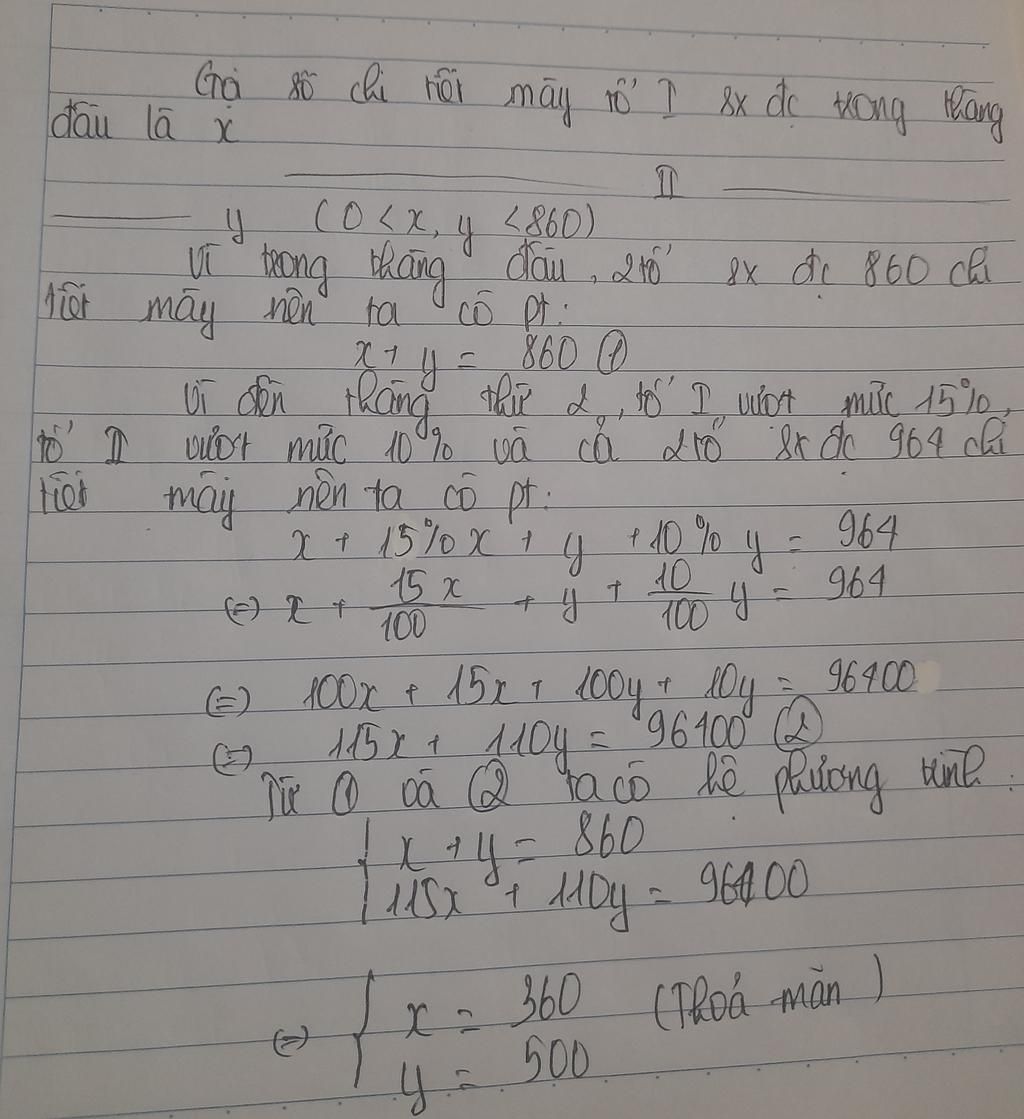 Gọi số chi tiết máy tổ I sx đc trong tháng
đầu là x
II
y (0 < x, y < 860)
Vì trong tháng đầu, 2 tổ sx đc 860 chi
tiết máy nên ta có pt:
x + y = 860 ①
Vì đến tháng thứ 2, tổ I vượt mức 15%,
tổ II vượt mức 10% và cả 2 tổ sx đc 964 chi
tiết máy nên ta có pt:
x + 15% x + y + 10% y = 964
(=) x + 15x/100 + y + 10/100 y = 964
(=) 100x + 15x + 100y + 10y = 96400
(=) 115x + 110y = 96400 ②
Từ ① và ② ta có hệ phương trình.
{ x + y = 860
115x + 110y = 96400
(=) { x = 360 (Thoả mãn)
y = 500